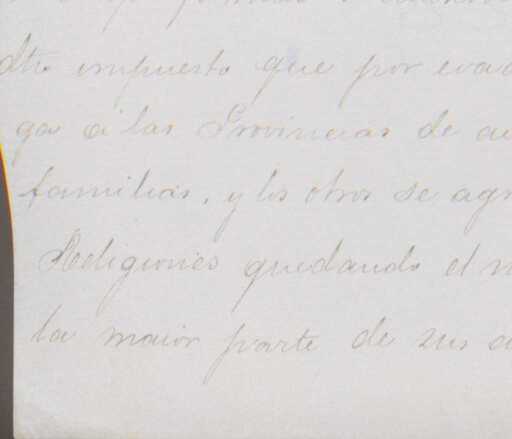 dho impuesto que por evad
ga á las Provincias de au
familias, y los otros se agr
Religiones quedando el n
la maior parte de sus a